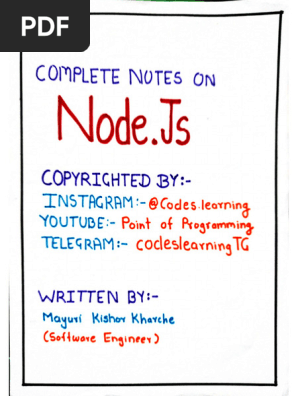 PDF
COMPLETE NOTES ON
Node.Js
COPYRIGHTED BY:-
INSTAGRAM:- @Codes.learning
YOUTUBE:- Point of Programming
TELEGRAM:- codeslearningTG
WRITTEN BY:-
Mayuri Kishor Kharche
(Software Engineer)